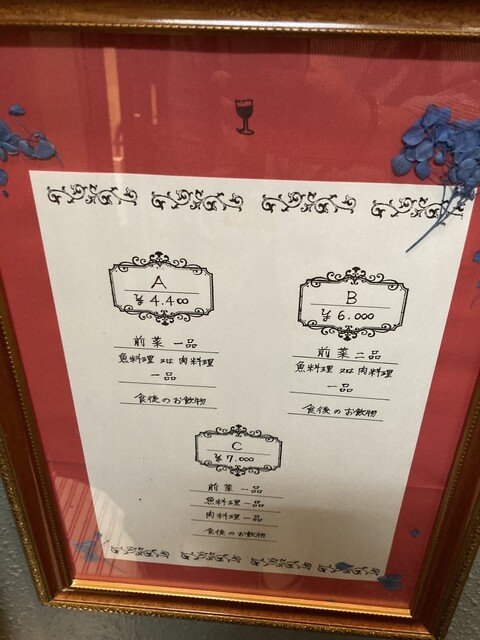 A
¥4.400
前菜 一品
魚料理 又は 肉料理
一品
食後のお飲物
B
¥6.000
前菜 二品
魚料理 又は 肉料理
一品
食後のお飲物
C
¥7.000
前菜 一品
魚料理 一品
肉料理 一品
食後のお飲物